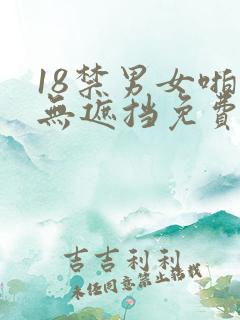 18禁男女啪
無遮挡免費
吉吉利利
未经同意禁止搭载